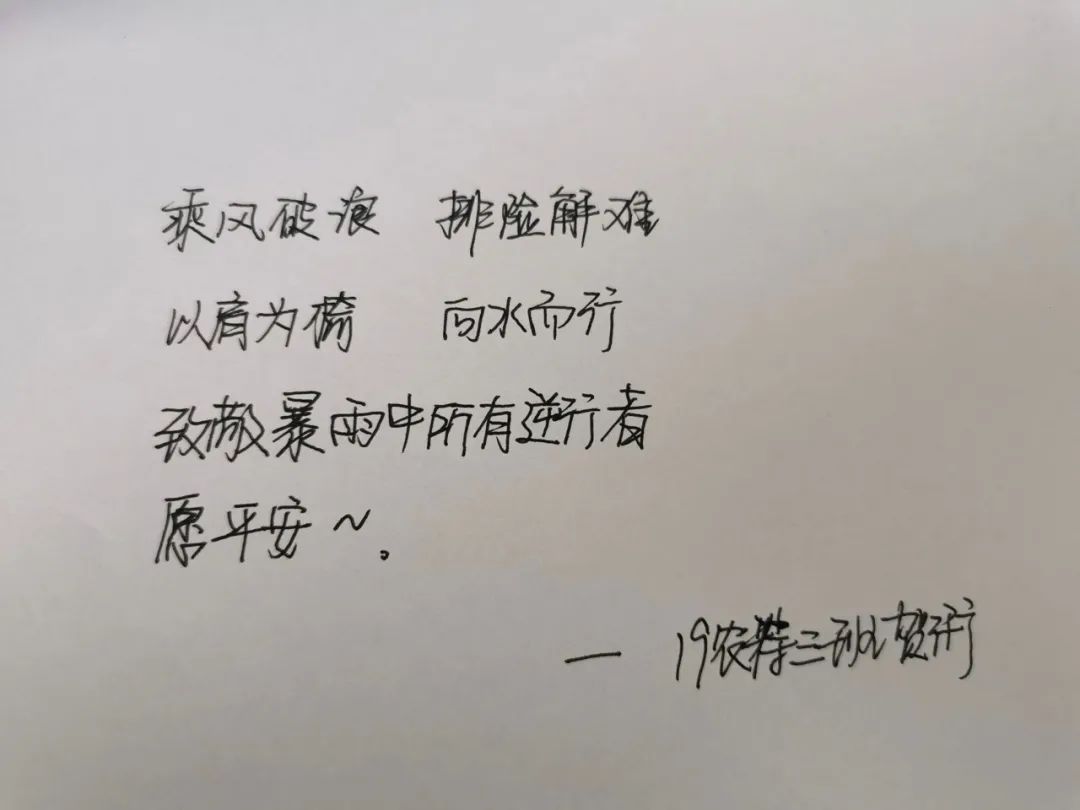 乘风破浪 排险解难
以肩为椅 向水而行
致敬暴雨中所有逆行者
愿平安~。
— 19农 三班贺